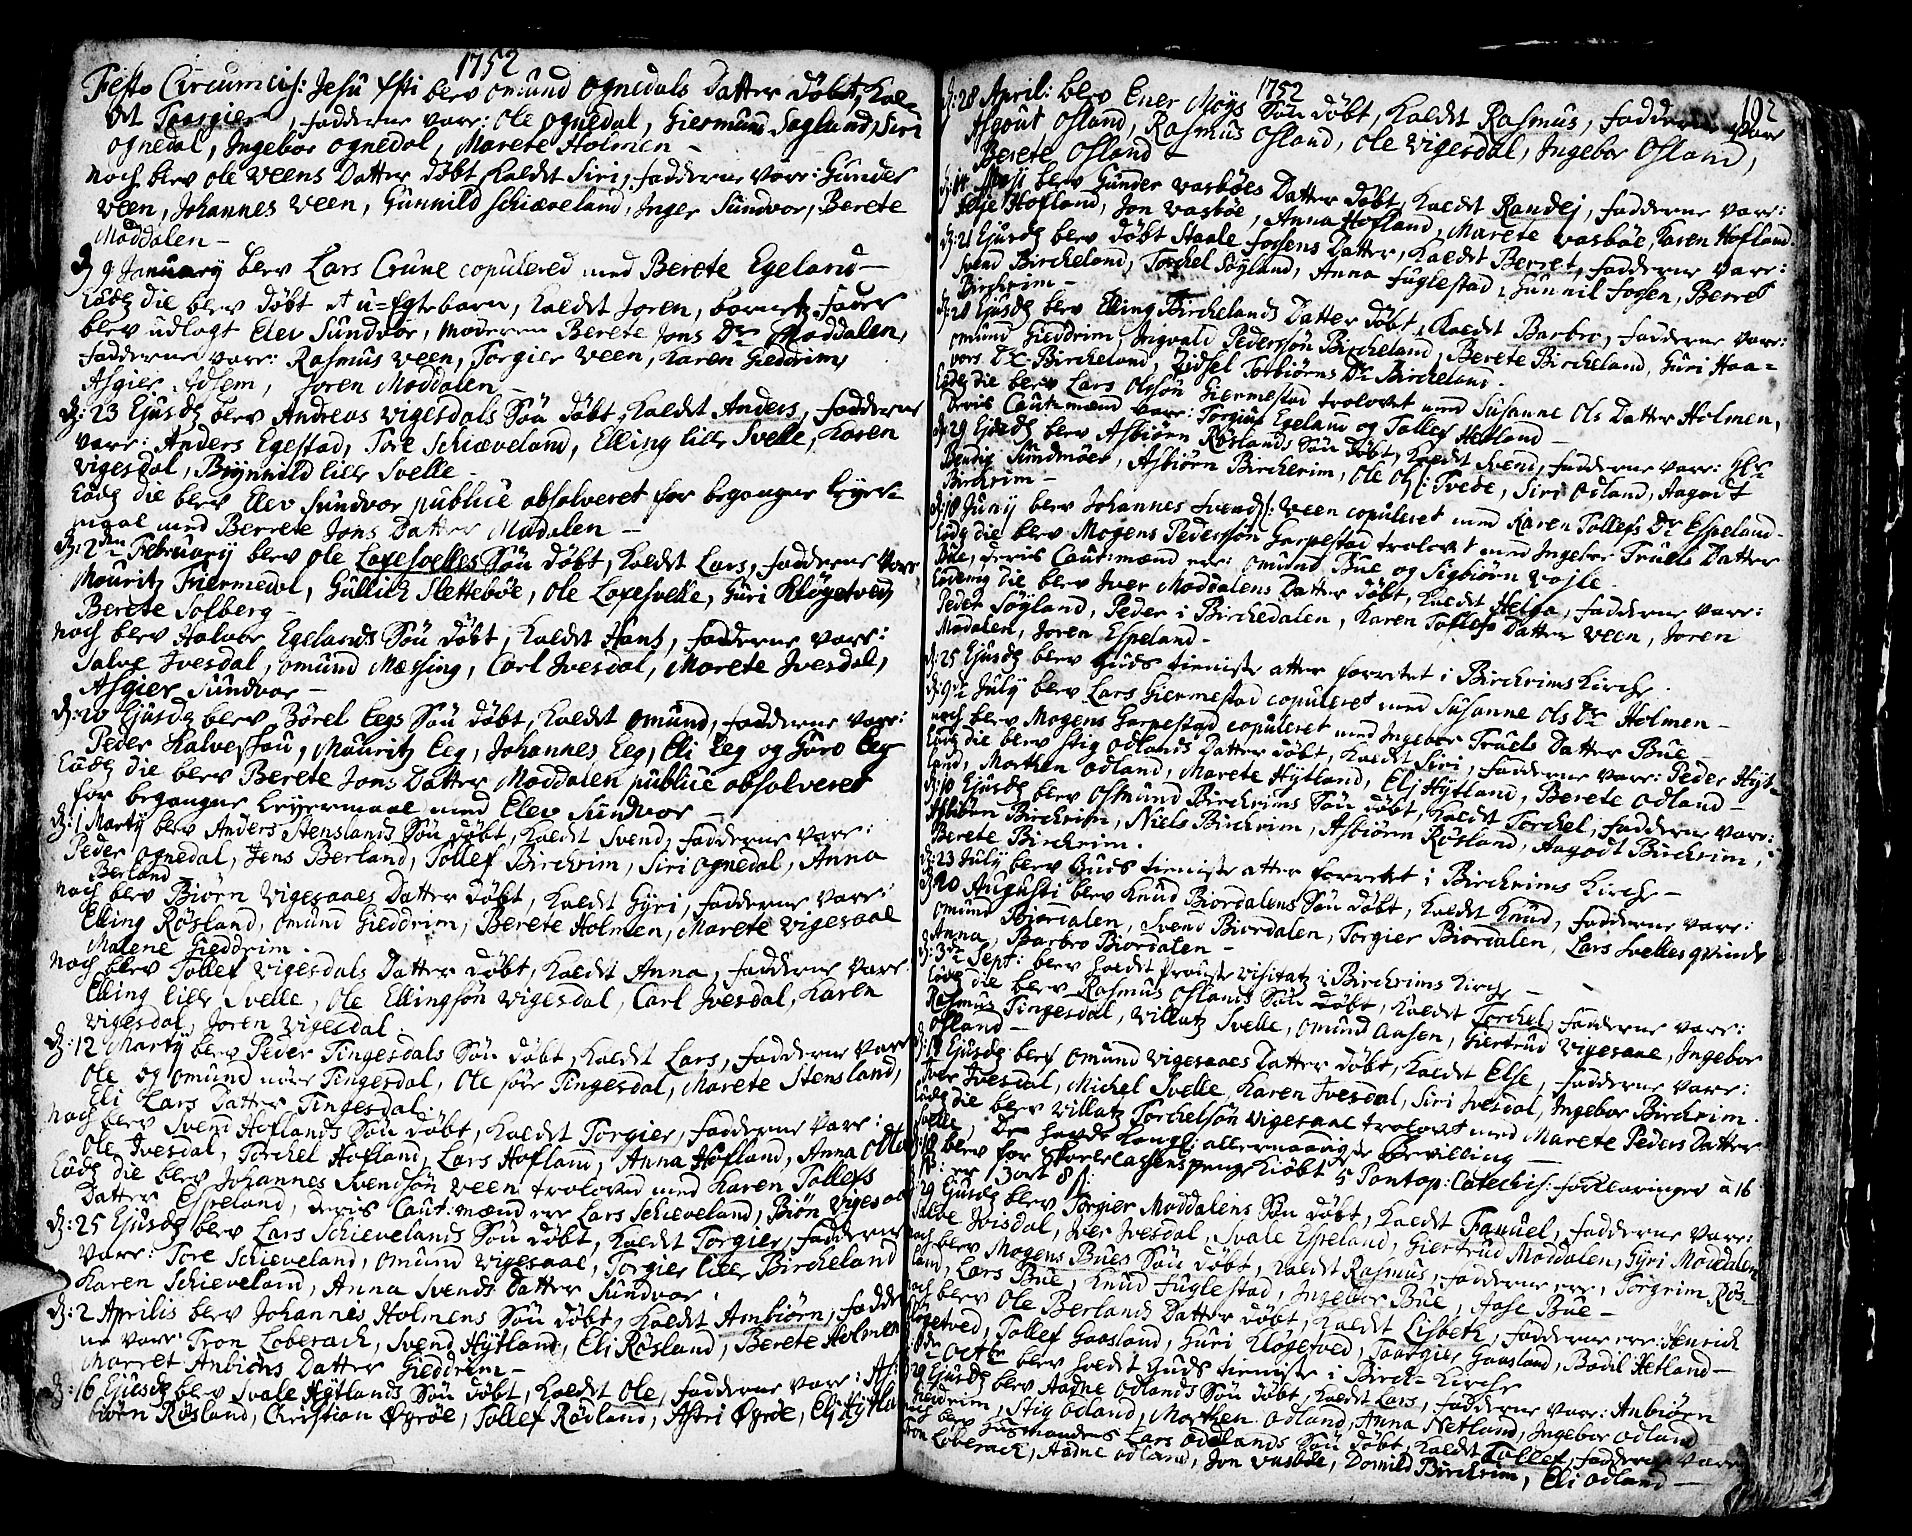 1752
Festo Circumcis: Jesu Xsti blev Omund Ognedals Datter døbt, kal-
det Taargier, fadderne vare: Ole Ognedal, Giermund Sagland, Siri
Ognedal, Ingebor Ognedal, Marete Holmen –
noch blev Ole Veens Datter døbt kaldet Siri, fadderne vare: Gunder
Veen, Johannes Veen, Gunnild Schiæveland, Inger Sundvor, Berete
Moddalen –
d 9 January blev Lars Crune copulered med Berete Egeland –
Eod die blev døbt et u-Egtebarn, kaldet Joren, barnets fader
blev udlagt Elev Sundvor, moderen Berete Jons Dr Moddalen,
fadderne vare: Rasmus Veen, Torgier Veen, Karen Gieddrim,
Asgier Adsem, Joren Moddalen –
d: 23 Ejusd blev Andreas Vigesdals Søn døbt, kaldet Anders, fadderne
vare: Anders Egestad, Tore Schiæveland, Elling lille Svelle, Karen
Vigesdal, Brynnild lille Svelle –
Eod die blev Elev Sundvor publice absolveret for begangne leyer-
maal med Berrete Jons Datter Madalen –
d: 2den February blev Ole Laxesvelles Søn døbt, kaldet Lars, fadderne vare
Mouritz Friermedal, Gullich Slettebøe, Ole Laxesvelle, Guri Kløgetved
Berete Solberg –
noch blev Halvor Egelands Søn døbt, kaldet Hans, fadderne vare:
Salve Ivesdal, Omund Mæssing, Carl Ivesdal, Marete Ivesdal,
Asgier Sundvor –
d: 20 Ejusd blev Børel Eegs Søn døbt, kaldet Omund, fadderne vare:
Peder Halvessøn, Mauritz Eeg, Johannes Eeg, Eli Eeg og Guro Eeg
Eod die blev Berete Jons Datter Moddalen publice absolveret
for begangne leyermaal med Elev Sundvor –
d: 1 Marty blev Anders Stenslands Søn døbt, kaldet Svend, fadderne vare:
Peder Ognedal, Jens Berland, Tollef Birchrim, Siri Ognedal, Anna
Berland
noch blev Biørn Vigesaaes Datter døbt, kaldet Gyri, fadderne vare:
Elling Røsland, Omund Gieddrim, Berete Holmen, Marete Vigesaae
Malene Gieddrim.
noch blev Tollef Vigesdals Datter døbt, kaldet Anna, fadderne vare
Elling lille Svelle, Ole Ellingsøn Vigesdal, Carl Ivesdal, Karen
Vigesdal, Joren Vigesdal.
d: 12 Marty blev Peder Tingesdals Søn døbt, kaldet Lars, fadderne vare
Ole og Omund nørr Tingesdal, Ole sørr Tingesdal, Marete Stensland,
Eli Lars Datter Tingesdal.
noch blev Svend Hoflands Søn døbt, kaldet Torgier, fadderne vare:
Ole Ivesdal, Torchel Hofland, Lars Hofland, Anna Hofland, Anna
Eod die blev Johannes Svendsøn Veen trolovet med Karen Tollefs
Datter Espeland, deris Caut: mænd ere Lars Schieveland, Biørn Vigesaa
d: 25 Ejusd blev Lars Schievelands Søn døbt, kaldet Torgier, fadderne
vare: Tore Schieveland, Omund Vigesaae, Torgier lille Bircheland
Karen Schieveland, Anna Svends Datter Sundvor.
d: 2 Aprilis blev Johannes Holmens Søn døbt, kaldet Ambiørn, fadder
ne vare Tron Loberach, Svend Hytland, Eli Røsland, Berete Holmen
Marret Anbiørns Datter Gieddrem –
d: 16 Ejusd blev Svale Hytlands Søn døbt, kaldet Ole, fadderne vare: As:
biørn Røsland, Christian Øgrøe, Tollef Rødland, Astri Øgrøe, Eli Hytlan
1752
102
d: 28 April: blev Ener Moys Søn døbt, kaldet Rasmus, fadderne vare
Asgout Osland, Rasmus Osland, Ole Vigesdal, Ingebor Osland,
Berete Osland –
d: 11 May blev Gunder Vasbøes Datter døbt, kaldet Randej, fadderne vare:
Hofland, Jon Vasbøe, Anna Hofland, Marete Vasbøe, Karen Hofland.
d: 21 Ejusd blev døbt Staale Fossens Datter, kaldet Berret, fadderne vare:
Svend Bircheland, Torchel Søyland, Anna Fuglestad, Gunnil Fossen, Berret
Birchrim –
d: 28 Ejusd blev Elling Birchelands Datter døbt, kaldet Barbro, fadderne vare:
Omund Gieddrim, Ingvald Pederssøn Bircheland, Berete Bircheland, Guri Haa-
vors Dr: Bircheland, Zidsel Torbiørns Dr Bircheland.
Eod die blev Lars Olssøn Giermestad trolovet med Susanne Ols Datter Holmen,
Deris Cautmænd vare: Torgius Egeland og Tollef Hetland –
d: 29 Ejusd blev Asbiørn Røslands Søn døbt, kaldet Svend, fadderne vare: Hr
Bendix Sundmøer, Asbiørn Birchrim, Ole Ols: Tvede, Siri Odland, Aagodt
Birchrim –
d: 18 Juny blev Johannes Svends: Veen copuleret med Karen Tollefs Dr Espeland.
Eod die blev Mogens Pederssøn Garpestad trolovet med Ingebor Truels Datter
Bue, deris Cautmænd ere: Omund Bue og Sigbiørn Vasle.
Eodemq die blev Iver Moddalens Datter døbt, kaldet Helga, fadderne vare:
Peder Søyland, Peder i Birchedalen, Karen Tollefs Datter Veen, Joren
Modalen, Joren Espeland.
d: 25 Ejusd blev Guds tieniste atter forretet i Birchrims Kirche.
d: 9de July blev Lars Giermestad copuleret med Susanne Ols Dr Holmen –
noch blev Mogens Garpestad copuleret med Ingebor Truels Datter Bue –
Eod die blev Stig Odlands Datter døbt, kaldet Siri, fadderne vare: Peder Hyt-
land, Morthen Odland, Marete Hytland, Elj Hytland, Berete Odland –
d: 10 Ejusd blev Osmund Birchrims Søn døbt, kaldet Torchel, fadderne vare:
Asbiørn Birchrim, Niels Birchrim, Asbiørn Røsland, Aagodt Birchrim,
Berete Birchrim.
d: 23 July blev Guds tieniste atter forretet i Birchrims Kirche –
d: 20 Augusti blev Knud Biordalens Søn døbt, kaldet Knud, fadderne vare:
Omund Biordalen, Svend Biordalen, Torgier Biordalen, Lars Svelles qvinde
Anna, Barbro Biordalen –
d: 3de Sept: blev holdt Provste Visitatz i Birchrims Kirche –
Eod die blev Rasmus Oslands Søn døbt, kaldet Torchel, fadderne vare:
Rasmus Tingesdal, Villatz Svelle, Omund Aasen, Giertrud Vigesaae, Ingebor
Osland –
Ejusd: blef Omund Vigesaaes Datter døbt, kaldet Else, fadderne vare:
Iver Ivesdal, Michel Svelle, Karen Ivesdal, Siri Ivesdal, Ingebor Birchrim.
Eod die blev Villatz Torchelsøn Vigesaae trolovet med Marete Peders Datter
Svelle, De havde Kongl: allernaadigste Bevilling –
d: 18 blev for Skolecassens penge kiøbt 5 Pontop: Catechis: forklaringer a 16
ß: er 3 ort 8 ß:
29 Ejusd blev Torgier Moddalens Søn døbt, kaldet Fanuel, fadderne vare:
Salve Ivisdal, Iver Ivesdal, Svale Espeland, Giertrud Moddalen, Gyri Moddalen
noch blev Mogens Bues Søn døbt, kaldet Rasmus, fadderne ere, Torgrim Røs-
land, Lars Bue, Knud Fuglestad, Ingebor Bue, Aase Bue –
noch blev Ole Berlands Datter døbt, kaldet Lisbeth, fadderne ere: Henrich
Kløgetved, Tollef Gaasland, Guri Kløgetved, Taargier Gaasland, Bodil Hetland –
de Octr blev holdt Guds tieniste i Birch- Kirche
29 Ejusd blev Aadne Odlands Søn døbt, kaldet Lars, fadderne vare: Anbiørn
Gieddrim, Stig Odland, Morthen Odland, Anna Netland, Ingebor Odland
noch blev Husmanden Lars Odlands Søn døbt, kaldet Tollef, fadderne vare
Tron Loberach, Aadne Odland, Jon Vasbøe, Dornild Birchrim, Eli Odland –